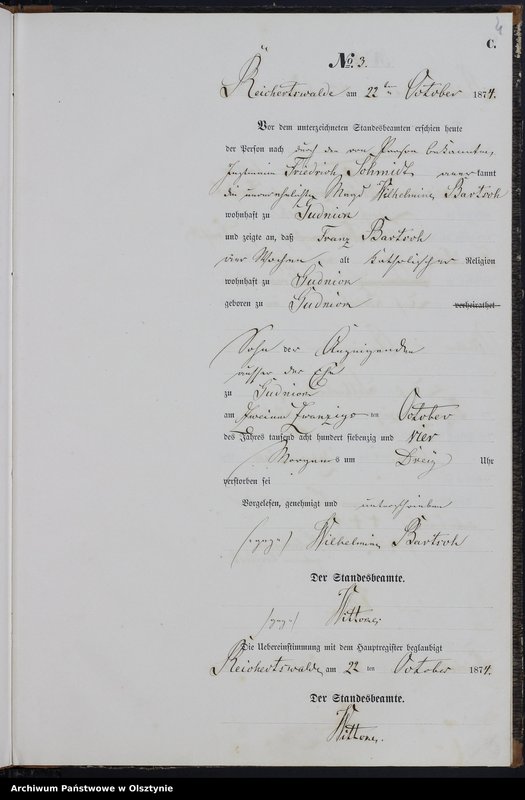 4
C.
No. 3.
Reichertswalde am 22ten October 1874.
Vor dem unterzeichneten Standesbeamten erschien heute
der Person nach durch den von Person bekannten
Friedrich Schmidt anerkannt
die unverehelichte Magd Wilhelmine Bartsch
wohnhaft zu Gudnion
und zeigte an, daß Franz Bartsch
vier Wochen alt katholischer Religion
wohnhaft zu Gudnion
geboren zu Gudnion verheirathet
Sohn der Anzeigenden
ausser der Ehe
zu Gudnion
am zwei und zwanzigsten October
des Jahres tausend acht hundert siebenzig und vier
Morgens um Drei Uhr
verstorben sei
Vorgelesen, genehmigt und unterschrieben
(gez.) Wilhelmine Bartsch
Der Standesbeamte.
(gez.)
Die Uebereinstimmung mit dem Hauptregister beglaubigt
Reichertswalde am 22ten October 1874.
Der Standesbeamte.
Archiwum Państwowe w Olsztynie